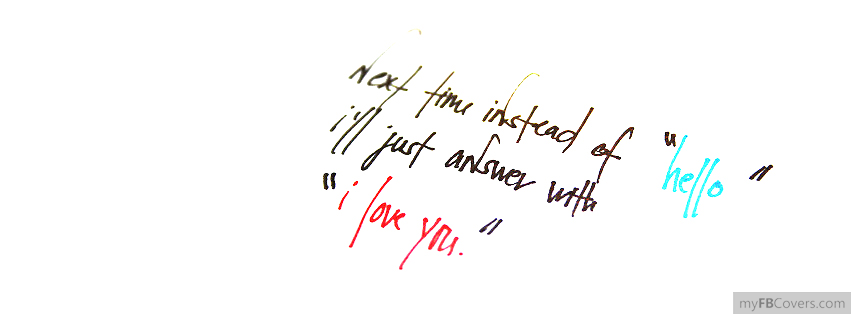 Next time instead of "hello"
i'll just answer with
"i love you."
myFBCovers.com